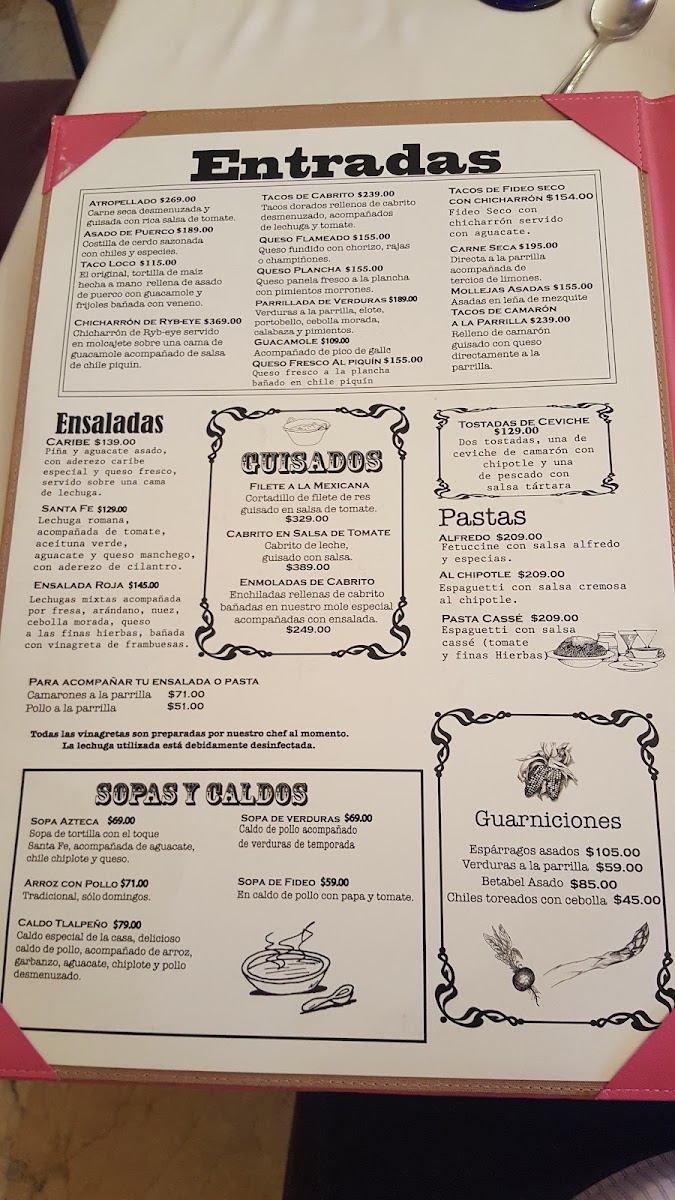 Entradas
ATROPELLADO $269.00
Carne seca desmenuzada y
guisada con rica salsa de tomate.
ASADO DE PUERCO $189.00
Costilla de cerdo sazonada
con chiles y especies.
TACO LOCO $115.00
El original, tortilla de maíz
hecha a mano rellena de asado
de puerco con guacamole y
frijoles bañada con veneno.
CHICHARRÓN DE RYB-EYE $369.00
Chicharrón de Ryb-eye servido
en molcajete sobre una cama de
guacamole acompañado de salsa
de chile piquin.
TACOS DE CABRITO $239.00
Tacos dorados rellenos de cabrito
desmenuzado, acompañados
de lechuga y tomate.
QUESO FLAMEADO $155.00
Queso fundido con chorizo, rajas
o champiñones.
QUESO PLANCHA $155.00
Queso panela fresco a la plancha
con pimientos morrones.
PARRILLADA DE VERDURAS $189.00
Verduras a la parrilla, elote,
portobello, cebolla morada,
calabaza y pimientos.
GUACAMOLE $109.00
Acompañado de pico de gallo
QUESO FRESCO AL PIQUÍN $155.00
Queso fresco a la plancha
bañado en chile piquín
TACOS DE FIDEO SECO
CON CHICHARRÓN $154.00
Fideo Seco con
chicharrón servido
con aguacate.
CARNE SECA $195.00
Directa a la parrilla
acompañada de
tercios de limones.
MOLLEJAS ASADAS $155.00
Asadas en leña de mezquite
TACOS DE CAMARÓN
A LA PARRILLA $239.00
Relleno de camarón
guisado con queso
directamente a la
parrilla.
Ensaladas
CARIBE $139.00
Piña y aguacate asado,
con aderezo caribe
especial y queso fresco,
servido sobre una cama
de lechuga.
SANTA FE $129.00
Lechuga romana,
acompañada de tomate,
aceituna verde,
aguacate y queso manchego,
con aderezo de cilantro.
ENSALADA ROJA $145.00
Lechugas mixtas acompañada
por fresa, arándano, nuez,
cebolla morada, queso
a las finas hierbas, bañada
con vinagreta de frambuesas.
GUISADOS
FILETE A LA MEXICANA
Cortadillo de filete de res
guisado en salsa de tomate.
$329.00
CABRITO EN SALSA DE TOMATE
Cabrito de leche,
guisado con salsa.
$389.00
ENMOLADAS DE CABRITO
Enchiladas rellenas de cabrito
bañadas en nuestro mole especial
acompañadas con ensalada.
$249.00
TOSTADAS DE CEVICHE
$129.00
Dos tostadas, una de
ceviche de camarón con
chipotle y una
de pescado con
salsa tártara
Pastas
ALFREDO $209.00
Fetuccine con salsa alfredo
y especias.
AL CHIPOTLE $209.00
Espaguetti con salsa cremosa
al chipotle.
PASTA CASSÉ $209.00
Espaguetti con salsa
cassé (tomate
y finas Hierbas)
PARA ACOMPAÑAR TU ENSALADA O PASTA
Camarones a la parrilla $71.00
Pollo a la parrilla $51.00
Todas las vinagretas son preparadas por nuestro chef al momento.
La lechuga utilizada está debidamente desinfectada.
SOPAS Y CALDOS
SOPA AZTECA $69.00
Sopa de tortilla con el toque
Santa Fe, acompañada de aguacate,
chile chiplote y queso.
ARROZ CON POLLO $71.00
Tradicional, sólo domingos.
CALDO TLALPEÑO $79.00
Caldo especial de la casa, delicioso
caldo de pollo, acompañado de arroz,
garbanzo, aguacate, chiplote y pollo
desmenuzado.
SOPA DE VERDURAS $69.00
Caldo de pollo acompañado
de verduras de temporada
SOPA DE FIDEO $59.00
En caldo de pollo con papa y tomate.
Guarniciones
Espárragos asados $105.00
Verduras a la parrilla $59.00
Betabel Asado $85.00
Chiles toreados con cebolla $45.00